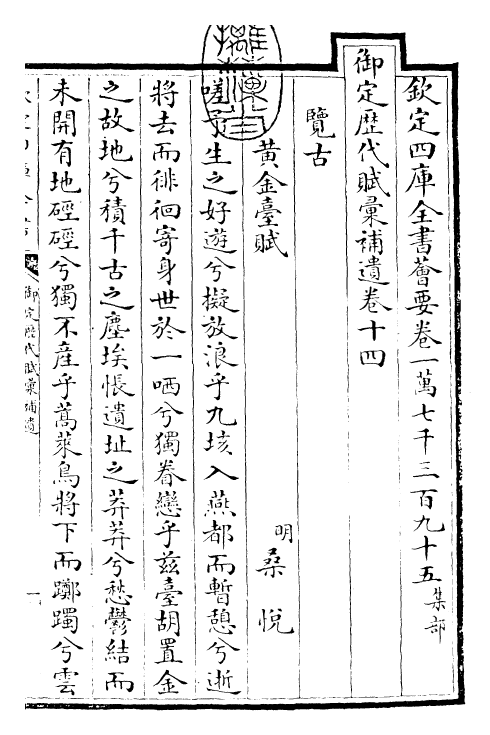 欽定四庫全書薈要卷一萬七千三百九十五集部
御定歷代賦彙補遺卷十四
覽古
黃金臺賦 明 桑悅
嗟予生之好遊兮擬放浪乎九垓入燕都而暫憩兮逝
將去而徘徊寄身世於一哂兮獨眷戀乎茲臺胡置金
之故地兮積千古之塵埃悵遺址之莽莽兮愁鬱結而
未開有地硜硜兮獨不產乎蒿萊鳥將下而躑躅兮雲
御定歷代賦彙補遺
一